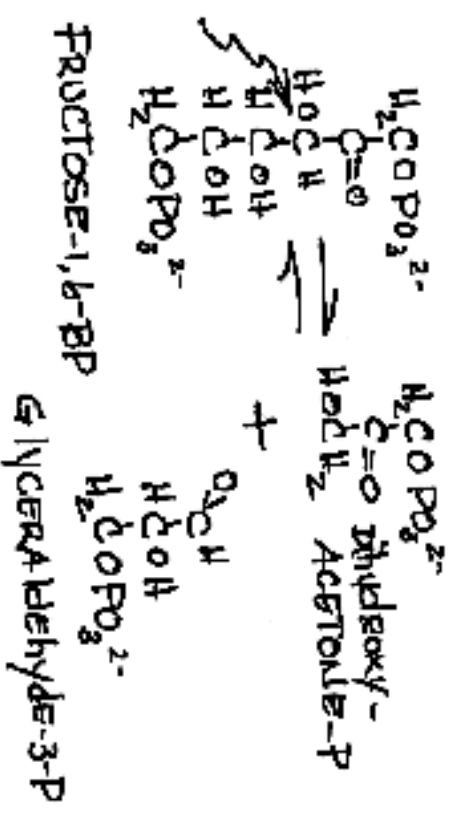 H₂COPO₃²⁻
C=O
HOCH
HCOH
HCOH
H₂COPO₃²⁻
FRUCTOSE-1,6-BP
H₂COPO₃²⁻
C=O
HOCH₂
DihydROXY-
ACETONE-P
+
O=CH
HCOH
H₂COPO₃²⁻
GlYCERAldehyde-3-P